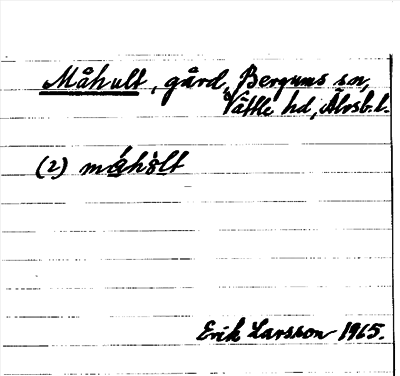 Måhult, gård, Bergums sn,
Vättle hd, Älvsb. l.
(2) måhòlt
Erik Larsson 1965.